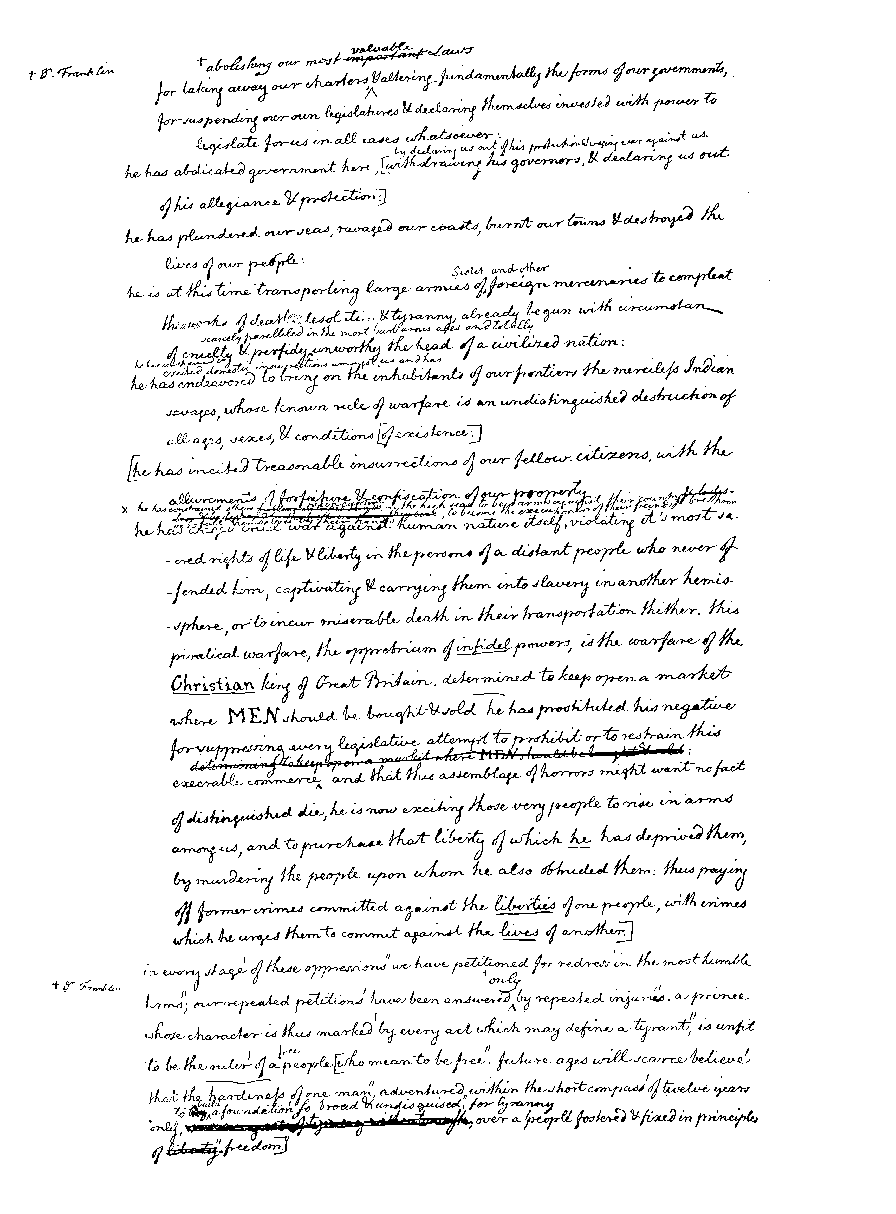 † Dr. Franklin
† abolishing our most important valuable Laws
for taking away our charters & altering fundamentally the forms of our governments,
for suspending our own legislatures & declaring themselves invested with power to
legislate for us in all cases whatsoever:
by declaring us out of his protection & waging war against us.
he has abdicated government here, [withdrawing his governors, & declaring us out
of his allegiance & protection:]
he has plundered our seas, ravaged our coasts, burnt our towns & destroyed the
lives of our people:
Scotch and other
he is at this time transporting large armies of foreign mercenaries to compleat
the works of death, & tyranny already begun with circumstances
scarcely paralleled in the most barbarous ages and totally
of cruelty & perfidy unworthy the head of a civilized nation:
excited domestic insurrections amongst us and has
he has endeavored to bring on the inhabitants of our frontiers the merciless Indian
savages, whose known rule of warfare is an undistinguished destruction of
all ages, sexes, & conditions [of existence:]
[he has incited treasonable insurrections of our fellow-citizens, with the
allurements of forfeiture & confiscation of our property
x he has constrained
he has waged cruel war against human nature itself, violating it's most sa-
-cred rights of life & liberty in the persons of a distant people who never of
-fended him, captivating & carrying them into slavery in another hemis-
-sphere, or to incur miserable death in their transportation thither. this
piratical warfare, the opprobrium of infidel powers, is the warfare of the
Christian king of Great Britain. determined to keep open a market
where MEN should be bought & sold he has prostituted his negative
for suppressing every legislative attempt to prohibit or to restrain this
determining to keep open a market where MEN should be bought & sold:
execrable commerce, and that this assemblage of horrors might want no fact
of distinguished die, he is now exciting those very people to rise in arms
among us, and to purchase that liberty of which he has deprived them,
by murdering the people upon whom he also obtruded them: thus paying
off former crimes committed against the liberties of one people, with crimes
which he urges them to commit against the lives of another.]
in every stage of these oppressions we have petitioned for redress in the most humble
† Dr. Franklin
only
terms; our repeated petitions have been answered by repeated injuries. a prince
whose character is thus marked by every act which may define a tyrant, is unfit
free
to be the ruler of a people [who mean to be free. future ages will scarce believe
that the hardiness of one man, adventured within the short compass of twelve years
to build a foundation so broad & undisguised, for tyranny
only, over a people fostered & fixed in principles
of liberty freedom]